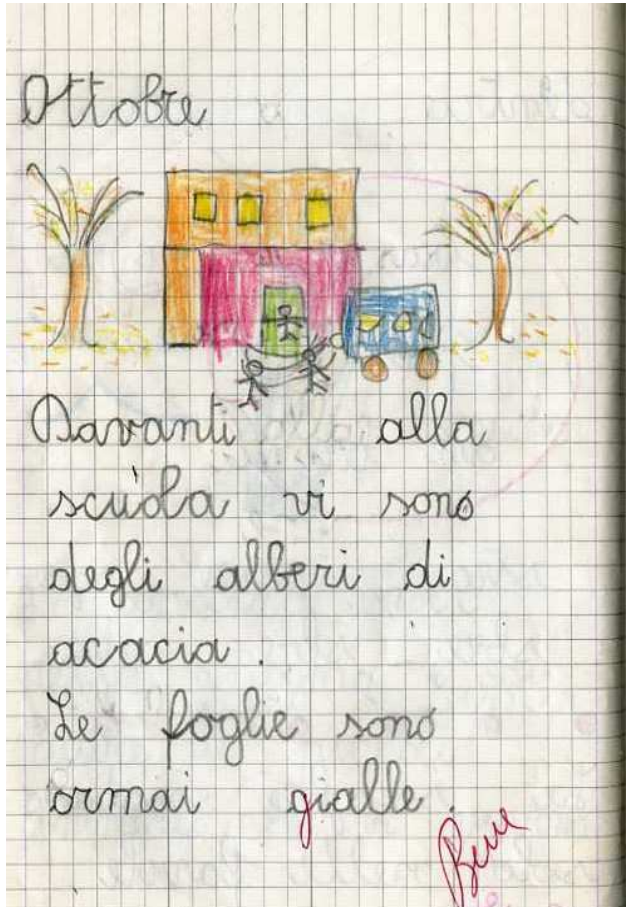 Ottobre
Davanti alla
scuola vi sono
degli alberi di
acacia.
Le foglie sono
ormai gialle.
Bene